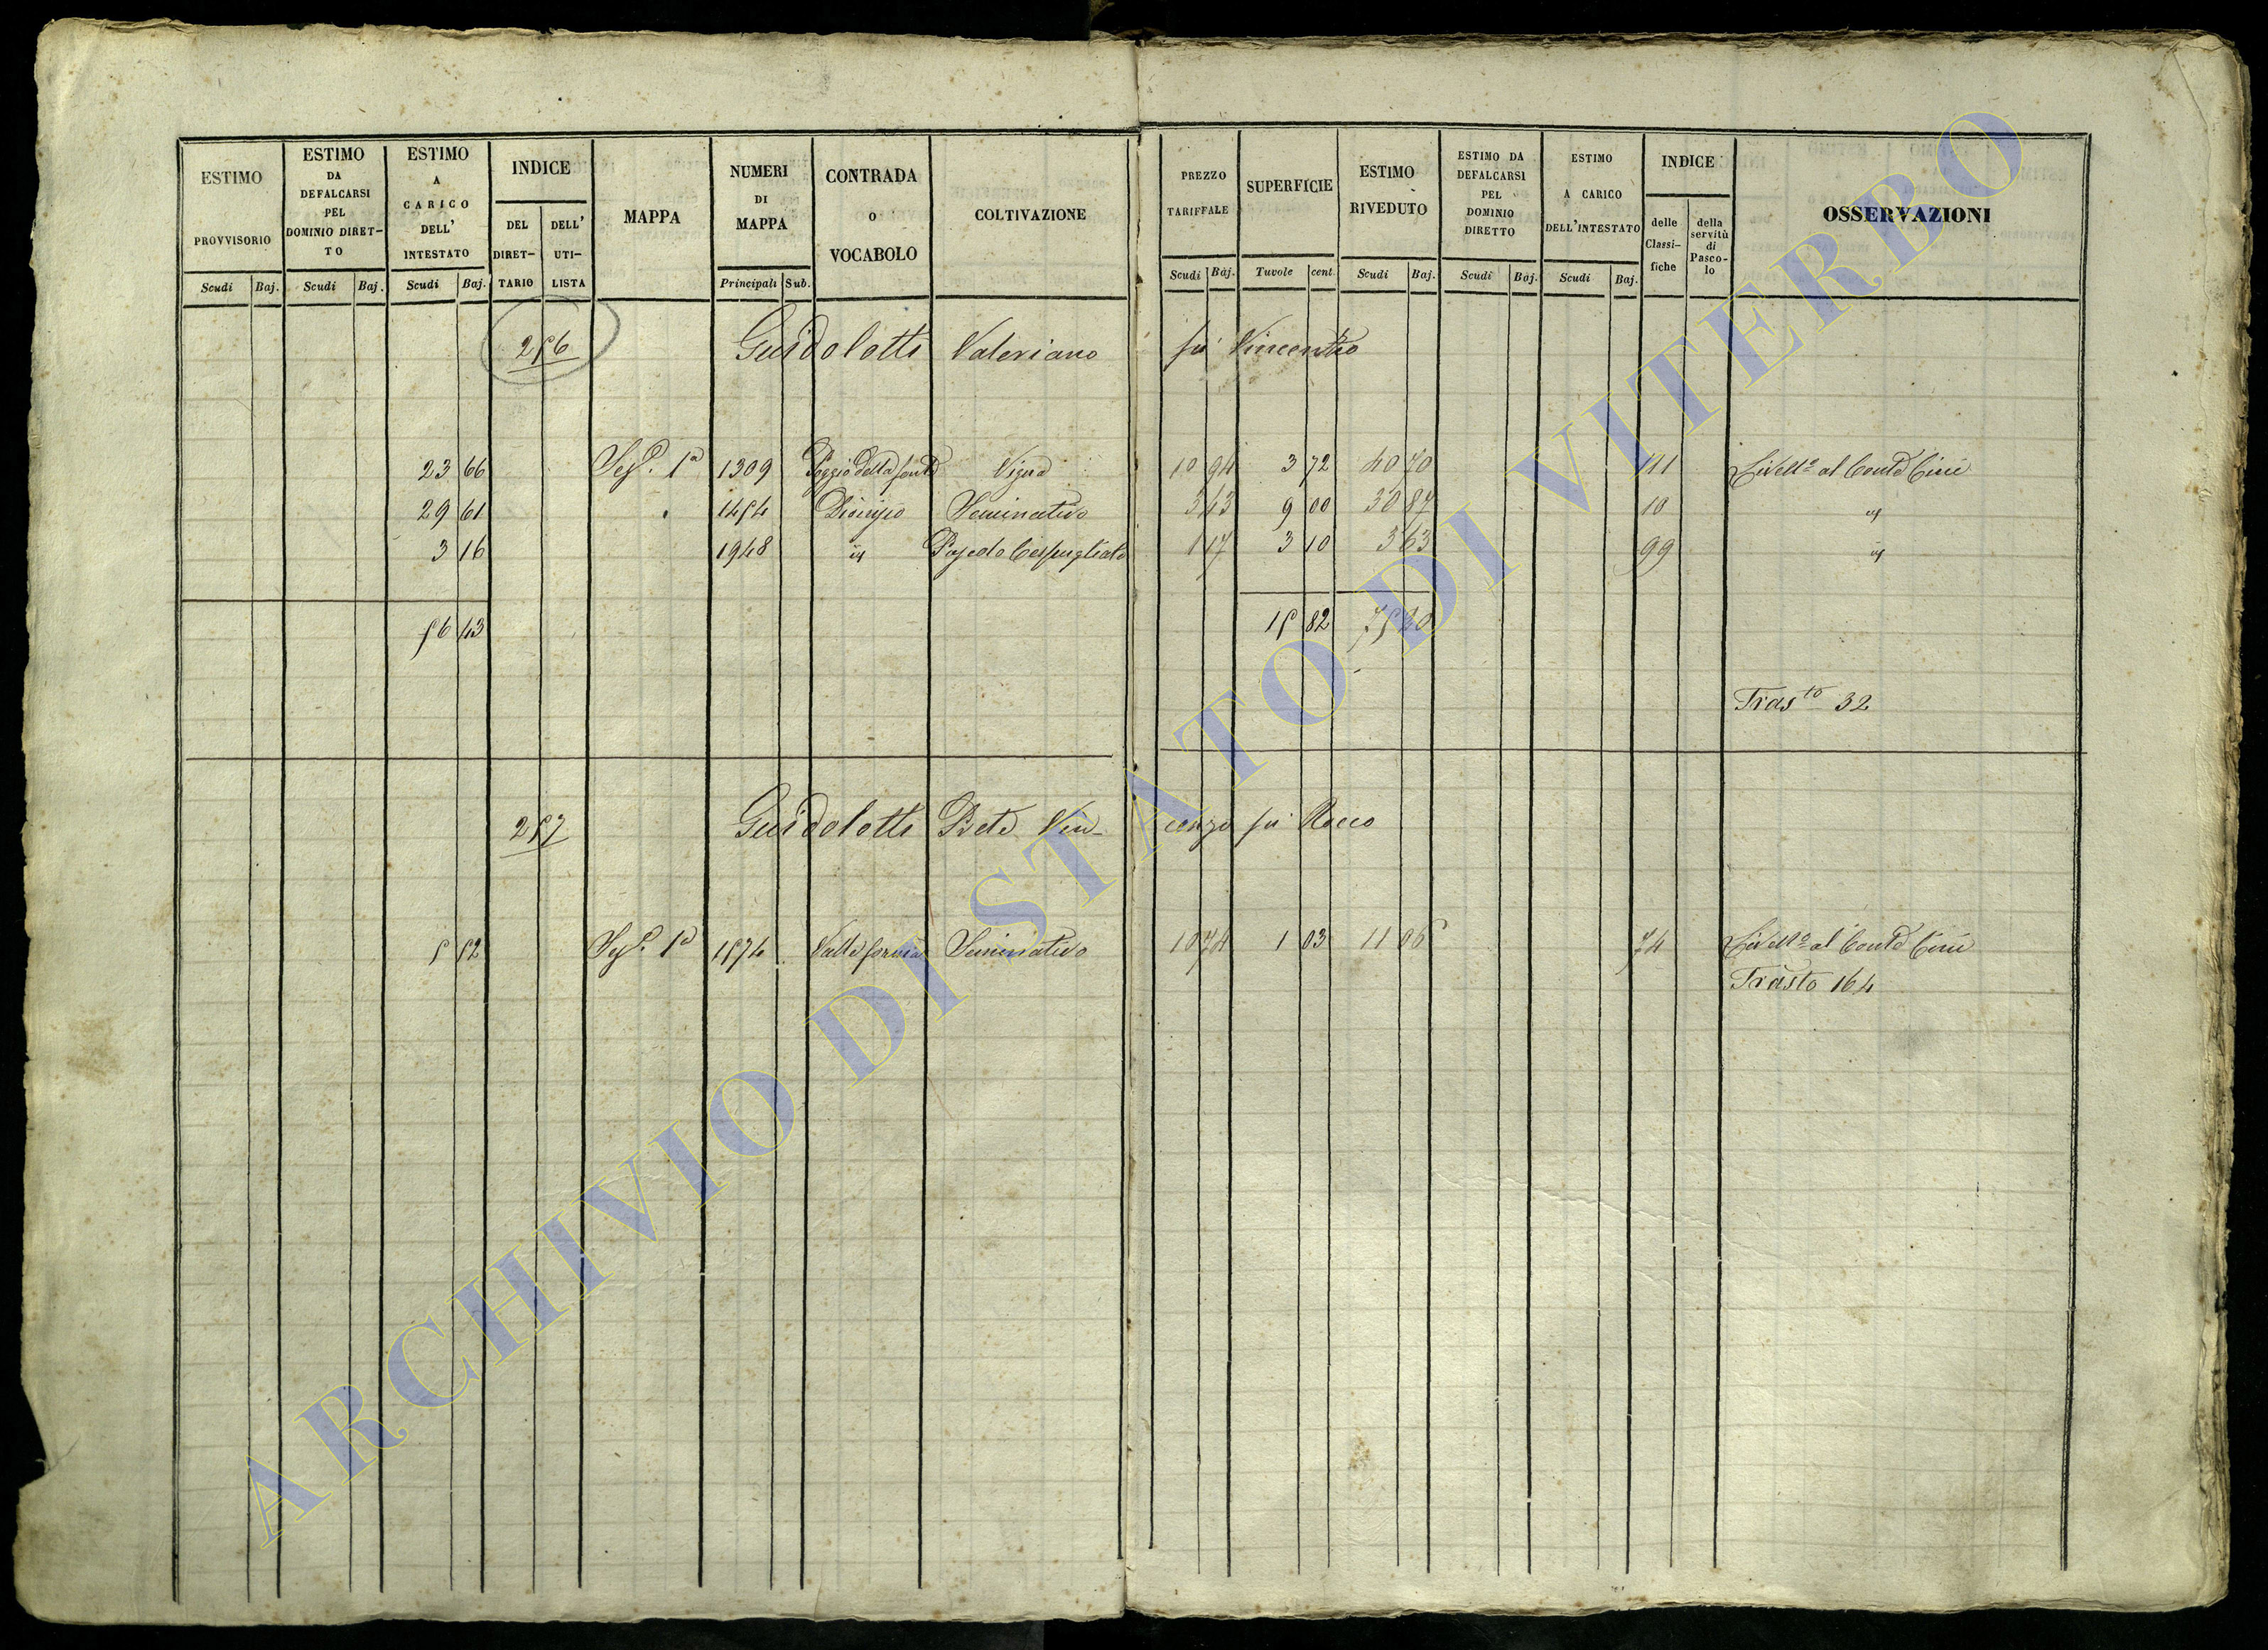 ESTIMO PROVVISORIO
Scudi Baj.
ESTIMO DA DEFALCARSI PEL DOMINIO DIRET-TO
Scudi Baj.
ESTIMO A CARICO DELL' INTESTATO
Scudi Baj.
INDICE
DEL DIRET-TARIO
DELL' UTI-LISTA
MAPPA
NUMERI DI MAPPA
Principali Sub.
CONTRADA O VOCABOLO
COLTIVAZIONE
PREZZO TARIFFALE
Scudi Baj.
SUPERFICIE
Tavole cent.
ESTIMO RIVEDUTO
Scudi Baj.
ESTIMO DA DEFALCARSI PEL DOMINIO DIRETTO
Scudi Baj.
ESTIMO A CARICO DELL'INTESTATO
Scudi Baj.
INDICE
delle Classi-fiche
della servitù di Pasco-lo
OSSERVAZIONI
256 Guidolotti Valeriano fu Vincenzo
23 66 Sez. 1a 1309 Poggio della fonte Vigna 10 94 3 72 40 70 111 Livello al Conte Cini
29 61 1454 Dionisio Seminativo 3 43 9 00 30 87 10 id
3 16 1948 id Pascolo Cespugliato 1 17 3 10 3 63 99 id
56 43 15 82 75 20
Trasto 32
257 Guidolotti Prete Vin-cenzo fu Rocco
5 52 Sez. 1a 1574 Valle formia Seminativo 10 74 1 03 11 06 74 Livello al Conte Cini
Trasto 164
ARCHIVIO DI STATO DI VITERBO